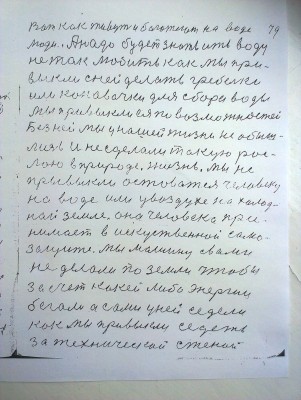 вот как живут и богатеют на воде 79
люди. А надо будет знать ить воду
не так любить как мы при-
выкли с ней делать гребелки
или копавачки для сбора воды
мы привыкли ея по возможностей
Без ней мы у нашей жизни не обиш-
лись и не сделали такую рос-
лою в природе. жизнь. мы не
прывыкли оставатся человеку
на воде или у воздухе на холод-
най земле. она человека при-
нимает в искуственной само-
защите. мы машину с вами
не делали по земли чтобы
за счет какей либо энергии
бегали а сами у ней седели
как мы привыкли седеть
за технической стеной